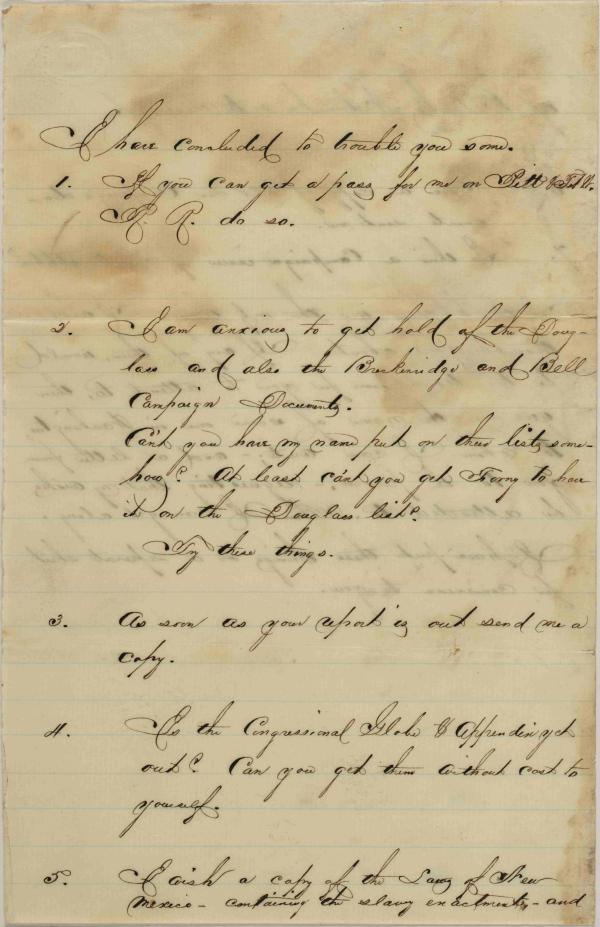 I have concluded to trouble you some.
1. If you can get a pass for me on Pitt & Ft W.
R. R. do so.
2. I am anxious to get hold of the Doug-
lass and also the Breckinridge and Bell
Campaign Documents.
Can't you have my name put on their lists some-
how? At least can't you get Forny to have
it on the Douglass list?
Try these things.
3. As soon as your report is out send me a
copy.
4. Is the Congressional Globe & Appendix yet
out? Can you get them without cost to
yourself.
5. I wish a copy of the Laws of New
Mexico - containing the slavery enactments, and